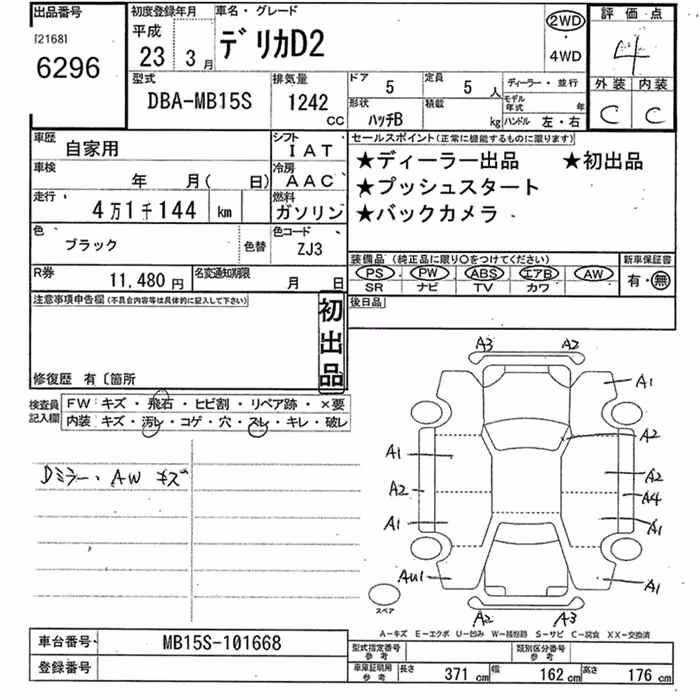 出品番号
[2168]
6296
初度登録年月
平成
23 3月
車名・グレード
デリカD2
2WD
4WD
評価点
4
外装 内装
C C
型式
DBA-MB15S
排気量
1242
CC
ドア 5
定員 5 人
ディーラー・並行
形状 ハッチB
積載 kg
モデル年式 年
ハンドル 左・右
車歴
自家用
シフト
IAT
車検
年 月( 日)
冷房
AAC
走行
4万1千144 km
燃料
ガソリン
色
ブラック
色替
色コード
ZJ3
R券
11,480円
名変通知期限
月 日
セールスポイント(正常に機能するものに限ります)
★ディーラー出品 ★初出品
★プッシュスタート
★バックカメラ
装備品(純正品に限り○をつけてください)
新車保証書
PS PW ABS エアB AW
SR ナビ TV カワ
有・無
後日品
注意事項申告欄(不具合内容等は具体的に記入して下さい)
初出品
修復歴 有〔箇所
検査員記入欄
FW キズ・飛石・ヒビ割・リペア跡・×要
内装 キズ・汚レ・コゲ・穴・スレ・キレ・破レ
Dミラー・AW キズ
A3 A2
A1
A2
A1
A2
A2 A4
A1 A1
AU1 A1
スペア
A2 A3
A-キズ E-エクボ U-凹み W-補修跡 S-サビ C-腐食 XX-交換済
車台番号
MB15S-101668
登録番号
型式指定番号
参考
類別区分番号
参考
車庫証明用
参考
長さ 371 cm
幅 162 cm
高さ 176 cm